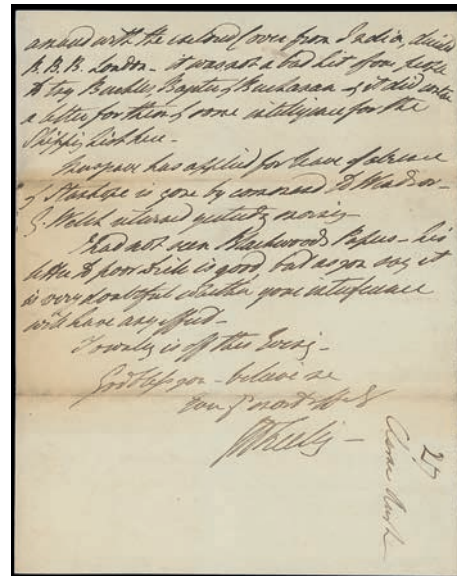 amused with the enclosed Cover from India, directed
B. B. B. London – it was not a bad hit of our people
to try Buckles, Bagster & Buchanan – & it did
a letter for them & some intelligence for the
Shipping list here –
has applied for leave of absence
& Stanhope is gone by command to Windsor –
G. Welch returned yesterday morning –
I had not seen Blackwood's Papers – his
letter to poor is good, but as you say it
is very doubtful whether your interference
will have any effect –
Townley is off this Evening –
God bless you – believe me
Your most
27